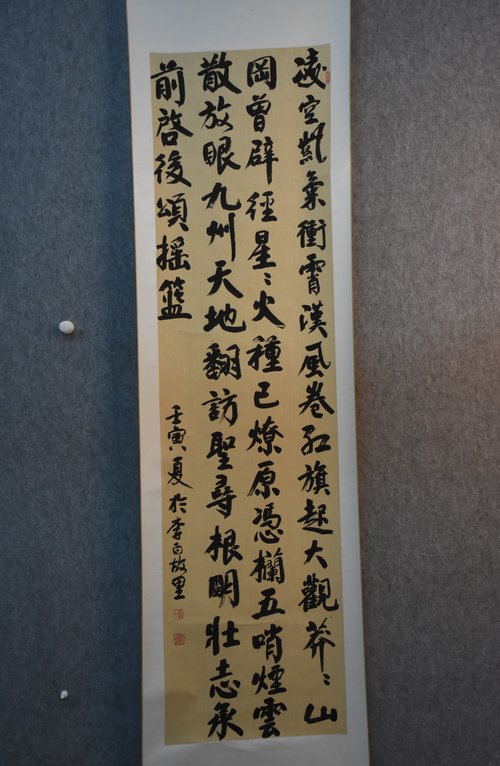 凌空紫氣衝霄漢風卷紅旗起大觀莽〻山
岡曾辟徑星〻火種已燎原憑欄五哨煙雲
散放眼九州天地翻訪聖尋根明壯志承
前啓後頌摇籃
壬寅夏於李白故里